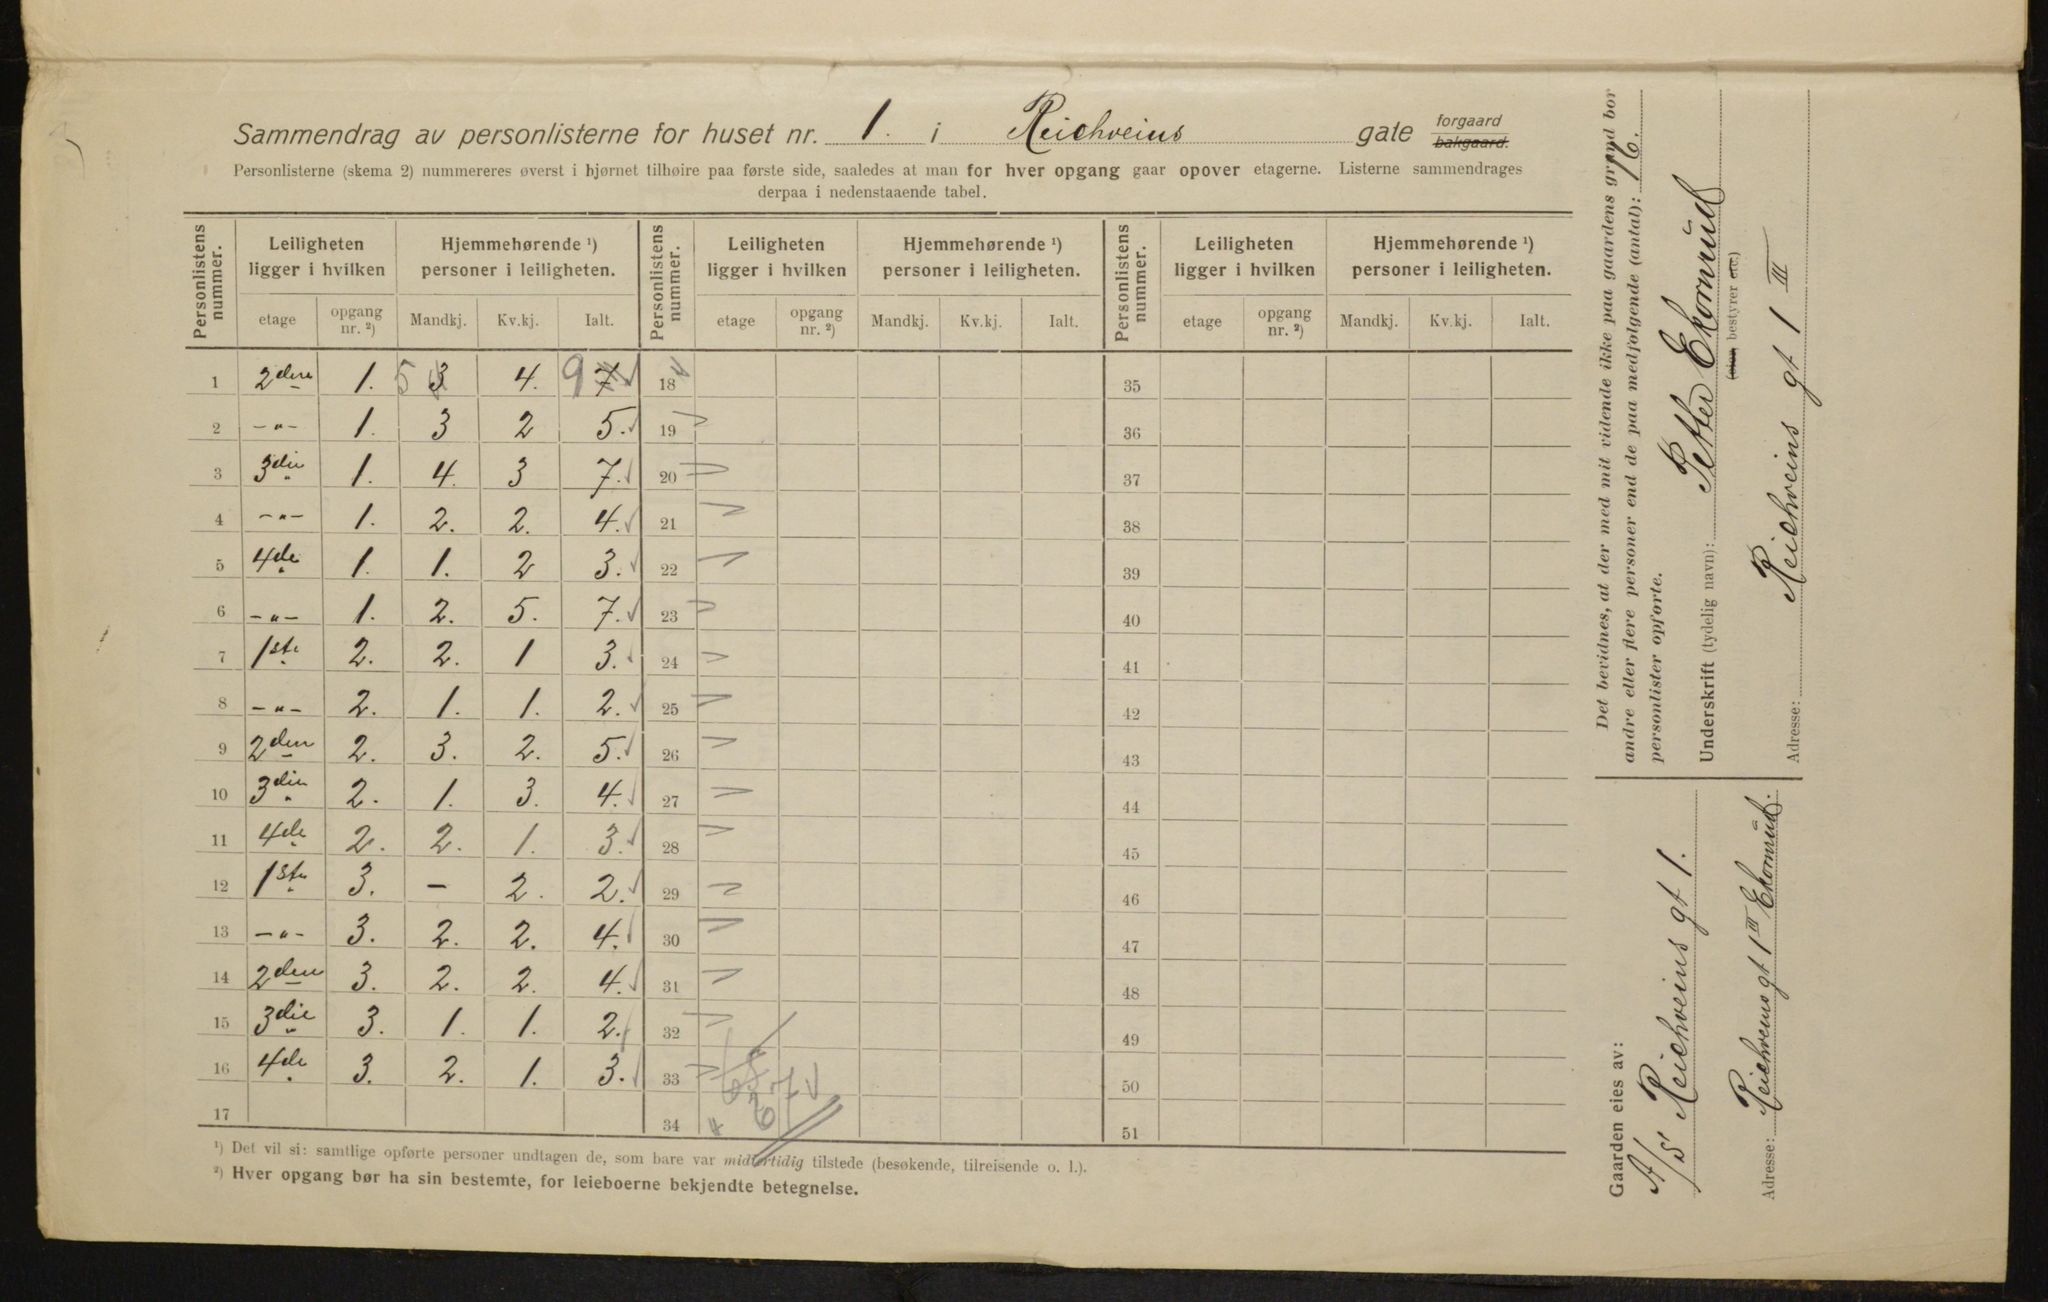 Sammendrag av personlisterne for huset nr. 1. i Reichweins gate forgaard bakgaard.
Personlisterne (skema 2) nummereres øverst i hjørnet tilhøire paa første side, saaledes at man for hver opgang gaar opover etagerne. Listerne sammendrages
derpaa i nedenstaaende tabel.
Personlistens nummer. Leiligheten ligger i hvilken Hjemmehørende ¹) personer i leiligheten. Personlistens nummer. Leiligheten ligger i hvilken Hjemmehørende ¹) personer i leiligheten. Personlistens nummer. Leiligheten ligger i hvilken Hjemmehørende ¹) personer i leiligheten.
etage opgang nr. ²) Mandkj. Kv.kj. Ialt. etage opgang nr. ²) Mandkj. Kv.kj. Ialt. etage opgang nr. ²) Mandkj. Kv.kj. Ialt.
1 2den 1. 5 3 4. 9 7 18 35
2 -"- 1. 3 2 5. 19 36
3 3die 1. 4. 3 7. 20 37
4 -"- 1. 2. 2. 4. 21 38
5 4de 1. 1. 2 3. 22 39
6 -"- 1. 2. 5. 7. 23 40
7 1ste 2. 2. 1 3. 24 41
8 -"- 2. 1. 1. 2. 25 42
9 2den 2. 3. 2. 5. 26 43
10 3die 2. 1. 3. 4. 27 44
11 4de 2. 2. 1. 3. 28 45
12 1ste 3. - 2. 2. 29 46
13 -"- 3. 2. 2. 4. 30 47
14 2den 3. 2. 2. 4. 31 48
15 3die 3. 1. 1. 2. 32 49
16 4de 3. 2. 1. 3. 33 50
17 34 51
¹) Det vil si: samtlige opførte personer undtagen de, som bare var midlertidig tilstede (besøkende, tilreisende o. l.).
²) Hver opgang bør ha sin bestemte, for leieboerne bekjendte betegnelse.
Det bevidnes, at der med mit vidende ikke paa gaardens grund bor
andre eller flere personer end de paa medfølgende (antal): 16.
personlister opførte.
Underskrift (tydelig navn): Petter Ekornrud
(eien bestyrer etc.)
Adresse: Reichweins gt 1 III
Gaarden eies av:
A/S Reichweins gt 1.
Adresse: Reichweins gt 1 III Ekornrud.